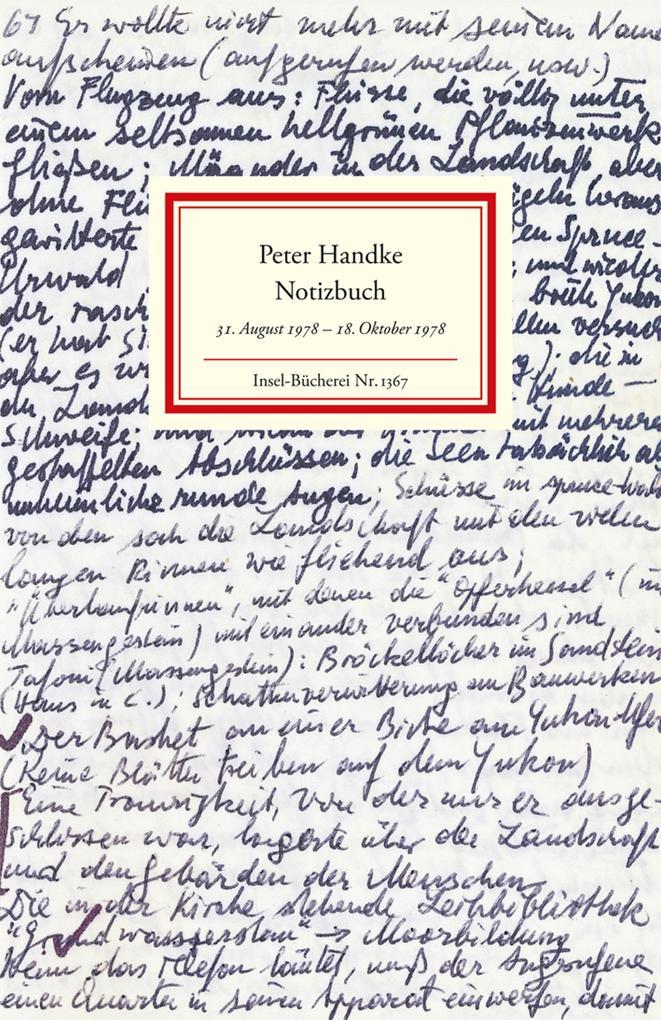 67 Er wollte nicht mehr mit seinem Name
aufscheinen (aufgerufen werden, usw.)
Vom Flugzeug aus: Flüsse, die völlig unter
einem seltsamen hellgrünen Pflanzenwerk
fließen; Mäander in der Landschaft, aber
ohne Flü
gewitterte
Urwald
der rasch
(er hat Si
aber es
der Lands
ügeln heraus
en Spruce-
; und wieder
breite Yukon
ellen
g): die in
Hunde —
mit mehreren
Peter Handke
Notizbuch
31. August 1978 – 18. Oktober 1978
Insel-Bücherei Nr. 1367
Schweife;
gestaffelten Abschlüssen; die Seen tatsächlich al
unheimliche runde Augen; Schüsse im spruce-Wald
von den sah die Landschaft mit den vielen
langen Rinnen wie fliehend aus;
"Überlaufrinnen", mit denen die "Opferkessel" (im
Massengestein) miteinander verbunden sind
Tafoni (Massengestein): Bröckellöcher im Sandstein
(Haus in C.); Schattenverwitterung an Bauwerken
Der Basket an einer Birke am Yukonufer
(Keine Blätter treiben auf dem Yukon)
Eine Traurigkeit, von der nur er ausge-
schlossen war, lagerte über der Landschaft
und den Gebärden der Menschen
Die in der Kirche stehende Leihbibliothek
"Grundwasserstau" → Moorbildung
Wenn das Telefon läutet, muß der Angerufene
einen Quarter in seinen Apparat einwerfen, damit